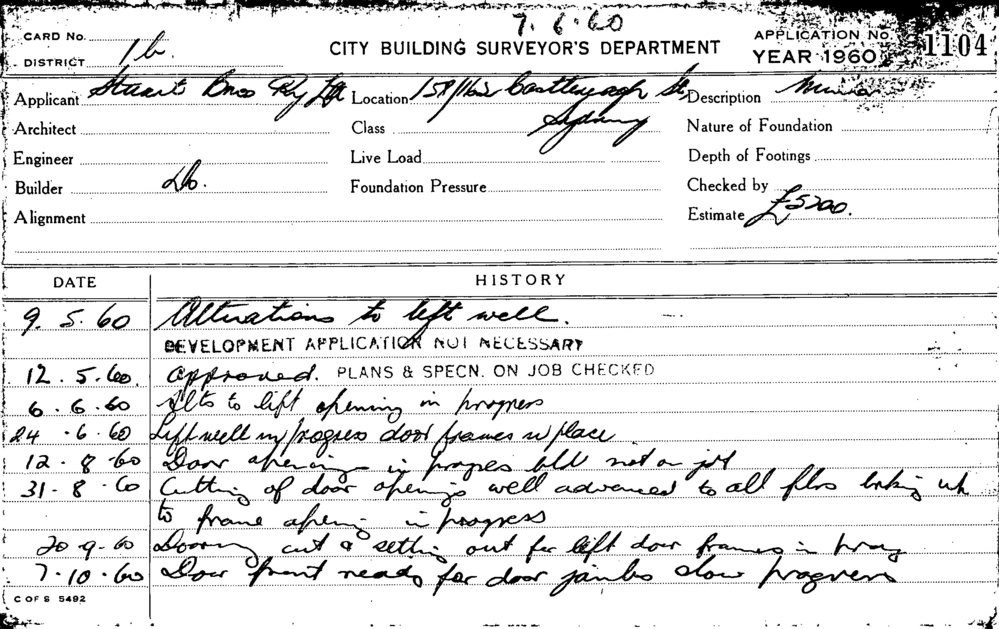 7.6.60
CARD No.
DISTRICT 1b
CITY BUILDING SURVEYOR'S DEPARTMENT
APPLICATION No. 1104
YEAR 1960
Applicant Stuart Bros Pty Ltd Location 158/162 Castlereagh St, Description
Architect Class Sydney Nature of Foundation
Engineer Live Load Depth of Footings
Builder Do. Foundation Pressure Checked by
Alignment Estimate £5200.
DATE HISTORY
9.5.60 Alterations to left well.
DEVELOPMENT APPLICATION NOT NECESSARY
12.5.60. approved. PLANS & SPECN. ON JOB CHECKED
6.6.60 Alts to lift opening in progress
24.6.60 Lift well in progress door frames in place
12.8.60 Door openings in progress bldr not on job
31.8.60 Cutting of door openings well advanced to all flrs
to frame opening in progress
20.9.60 cut & setting out for lift door frames in prog
7.10.60 Door front ready for door jambs slow progress
C OF S 5492